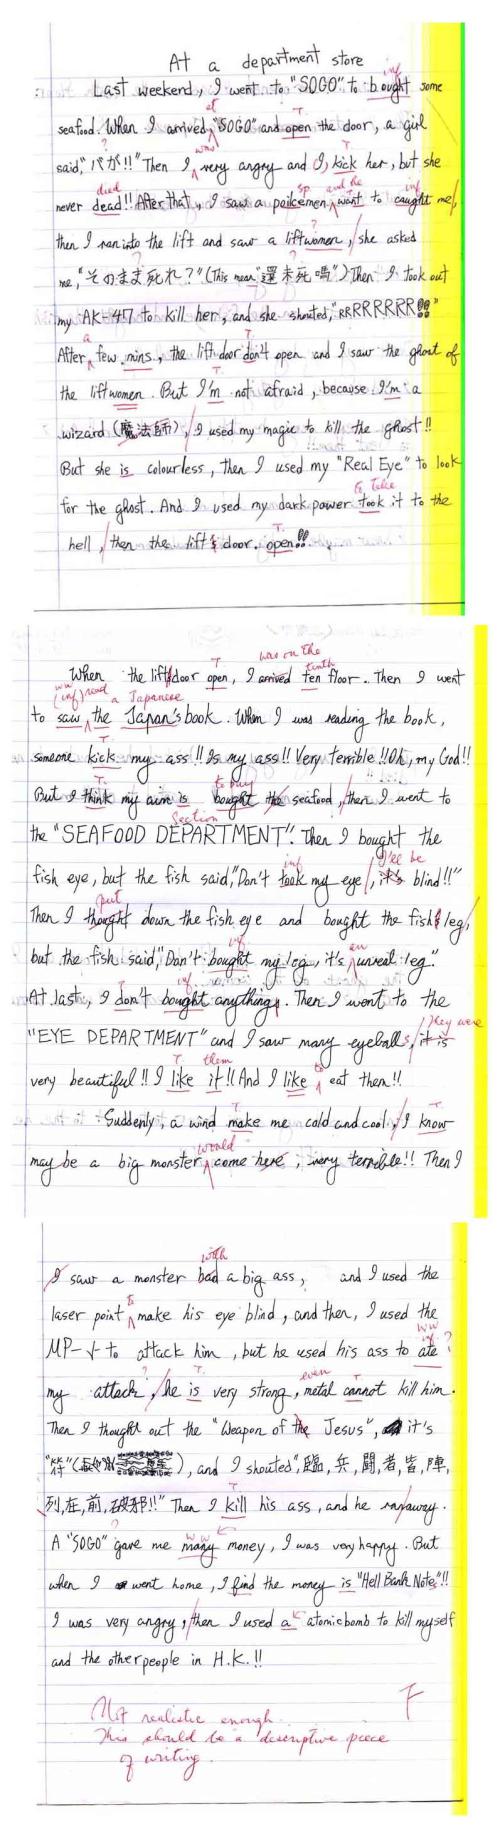 At a department store
Last weekend, I went to "SOGO" to bought some
seafood. When I arrived "SOGO" and open the door, a girl
said, "バカ!!" Then I very angry and I, kick her, but she
never dead!! After that, I saw a policemen want to caught me,
then I ran into the lift and saw a liftwomen, she asked
me, "そのまま死れ?" (This mean "還未死嗎") Then I took out
my AK-47 to kill her, and she shouted, "RRRRRRRR!!"
After few mins, the lift door don't open and I saw the ghost of
the liftwomen. But I'm not afraid, because I'm a
wizard (魔法師), I used my magic to kill the ghost!!
But she is colourless, then I used my "Real Eye" to look
for the ghost. And I used my dark power took it to the
hell, then the lift's door open!!.
When the lift door open, I arrived ten floor. Then I went
to saw the Japan's book. When I was reading the book,
someone kick my ass!! Is my ass!! Very terrible!! Oh, my God!!
But I think my aim is bought the seafood, then I went to
the "SEAFOOD DEPARTMENT". Then I bought the
fish eye, but the fish said, "Don't took my eye, it's blind!!"
Then I thought down the fish eye and bought the fish's leg,
but the fish said, "Don't bought my leg, it's unreal leg."
At last, I don't bought anything. Then I went to the
"EYE DEPARTMENT" and I saw many eyeball, it is
very beautiful!! I like it!! And I like eat them!!
Suddenly, a wind make me cold and cool, I know
may be a big monster come here, very terrible!! Then I
I saw a monster had a big ass, and I used the
laser point make his eye blind, and then, I used the
MP-5 to attack him, but he used his ass to ate
my attack, he is very strong, metal cannot kill him.
Then I thought out the "Weapon of the Jesus", it's
"符" ( ), and I shouted, "臨, 兵, 鬪, 者, 皆, 陣,
列, 在, 前, 破邪!!" Then I kill his ass, and he ran away.
A "SOGO" gave me many money, I was very happy. But
when I went home, I find the money is "Hell Bank Note"!!
I was very angry, then I used a atomic bomb to kill myself
and the other people in H.K.!!
F
Not realistic enough.
This should be a descriptive piece
of writing.